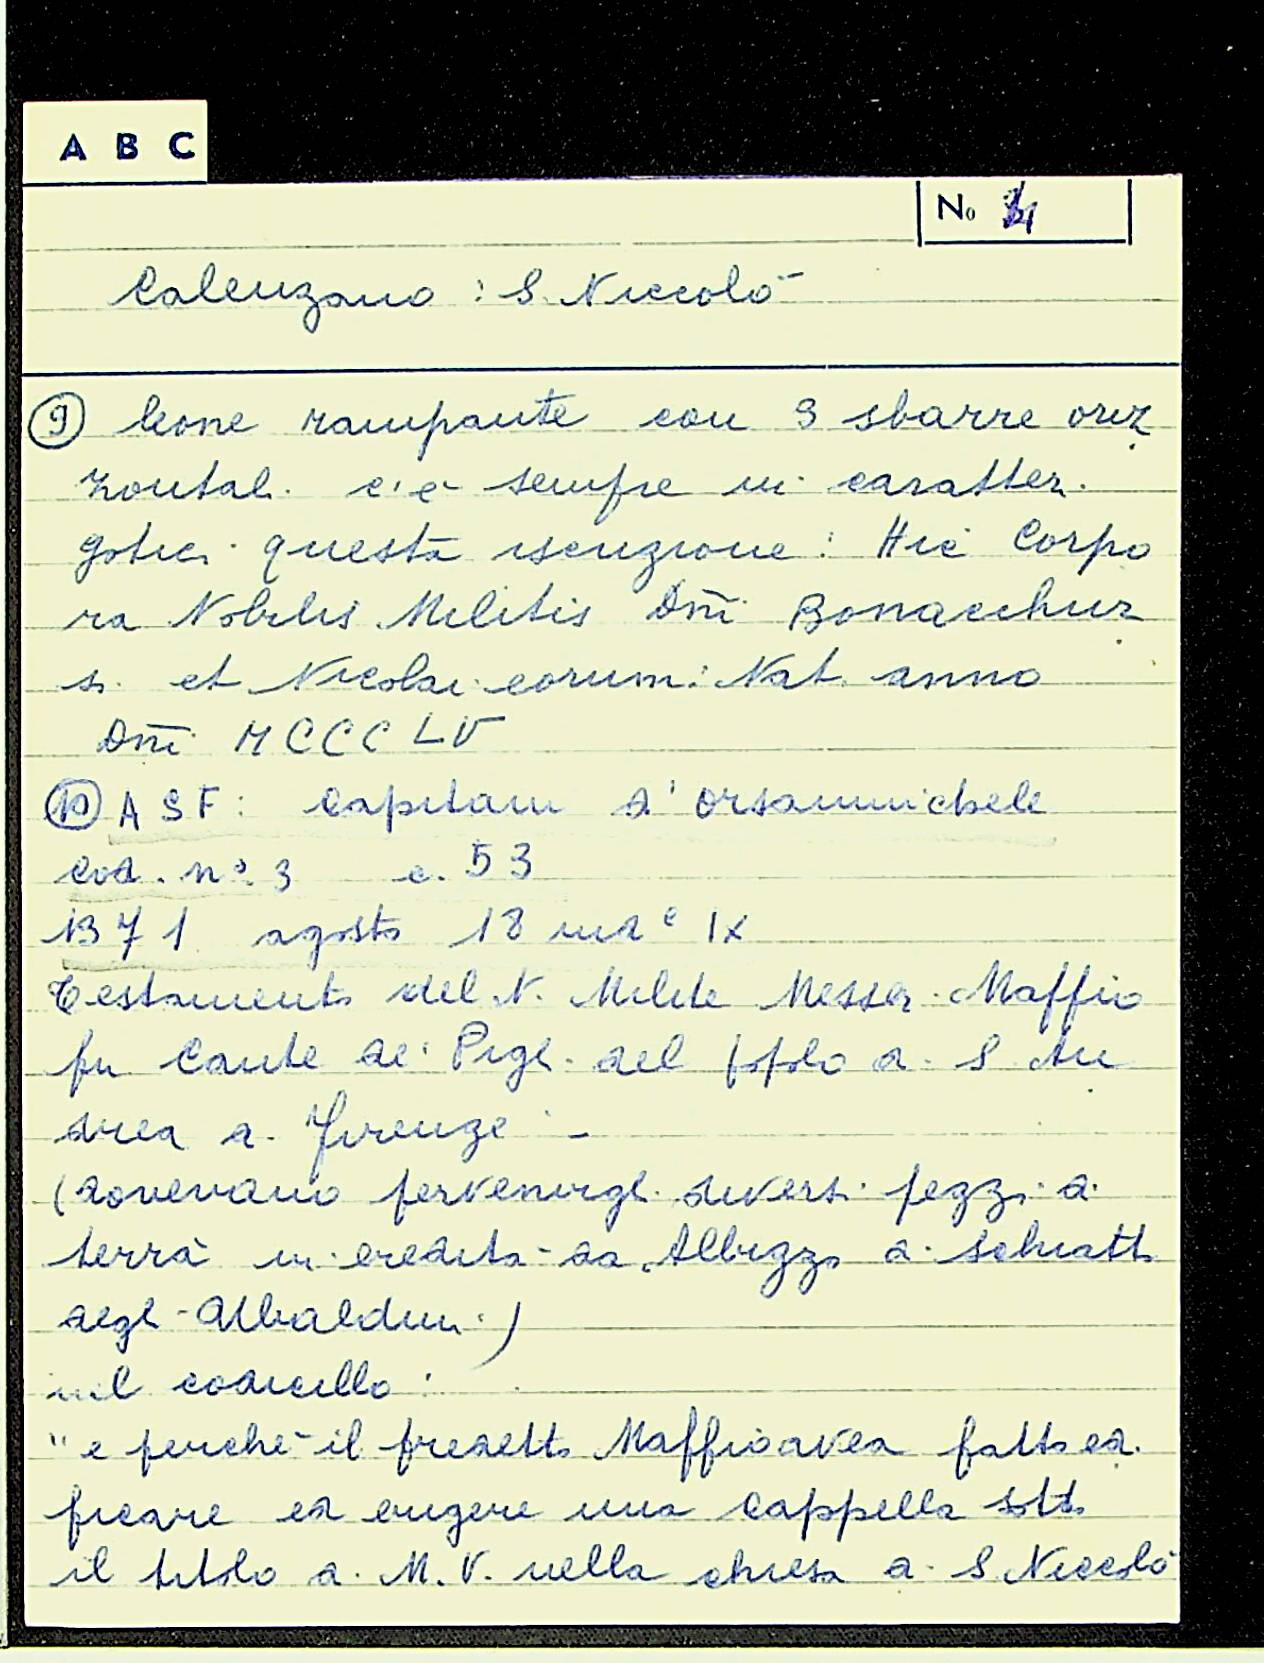 A B C
No 4
Calenzano : S. Niccolò
9 leone rampante con 3 sbarre oriz
zontali c'è sempre in caratteri
gotici questa iscrizione : Hic Corpo
ra Nobilis Militis Dnī Bonacchur
si et Nicolai eorum: Nat. anno
Dnī MCCCLV
10 ASF: Capitani d'Orsanmichele
cod. n° 3 c. 53
1371 agosto 18 indᵉ IX
Testamento del N. Milite Messer Maffio
fu Cante de' Pigli del popolo di S. An
drea di Firenze -
(dovevano pervenirgli diversi pezzi di
terra in eredità da Albizzo di Schiatto
degli Ubaldini)
nel codicillo :
" e perchè il predetto Maffio avea fatto edi
ficare ed erigere una Cappella sotto
il titolo di M. V. nella chiesa di S. Niccolò